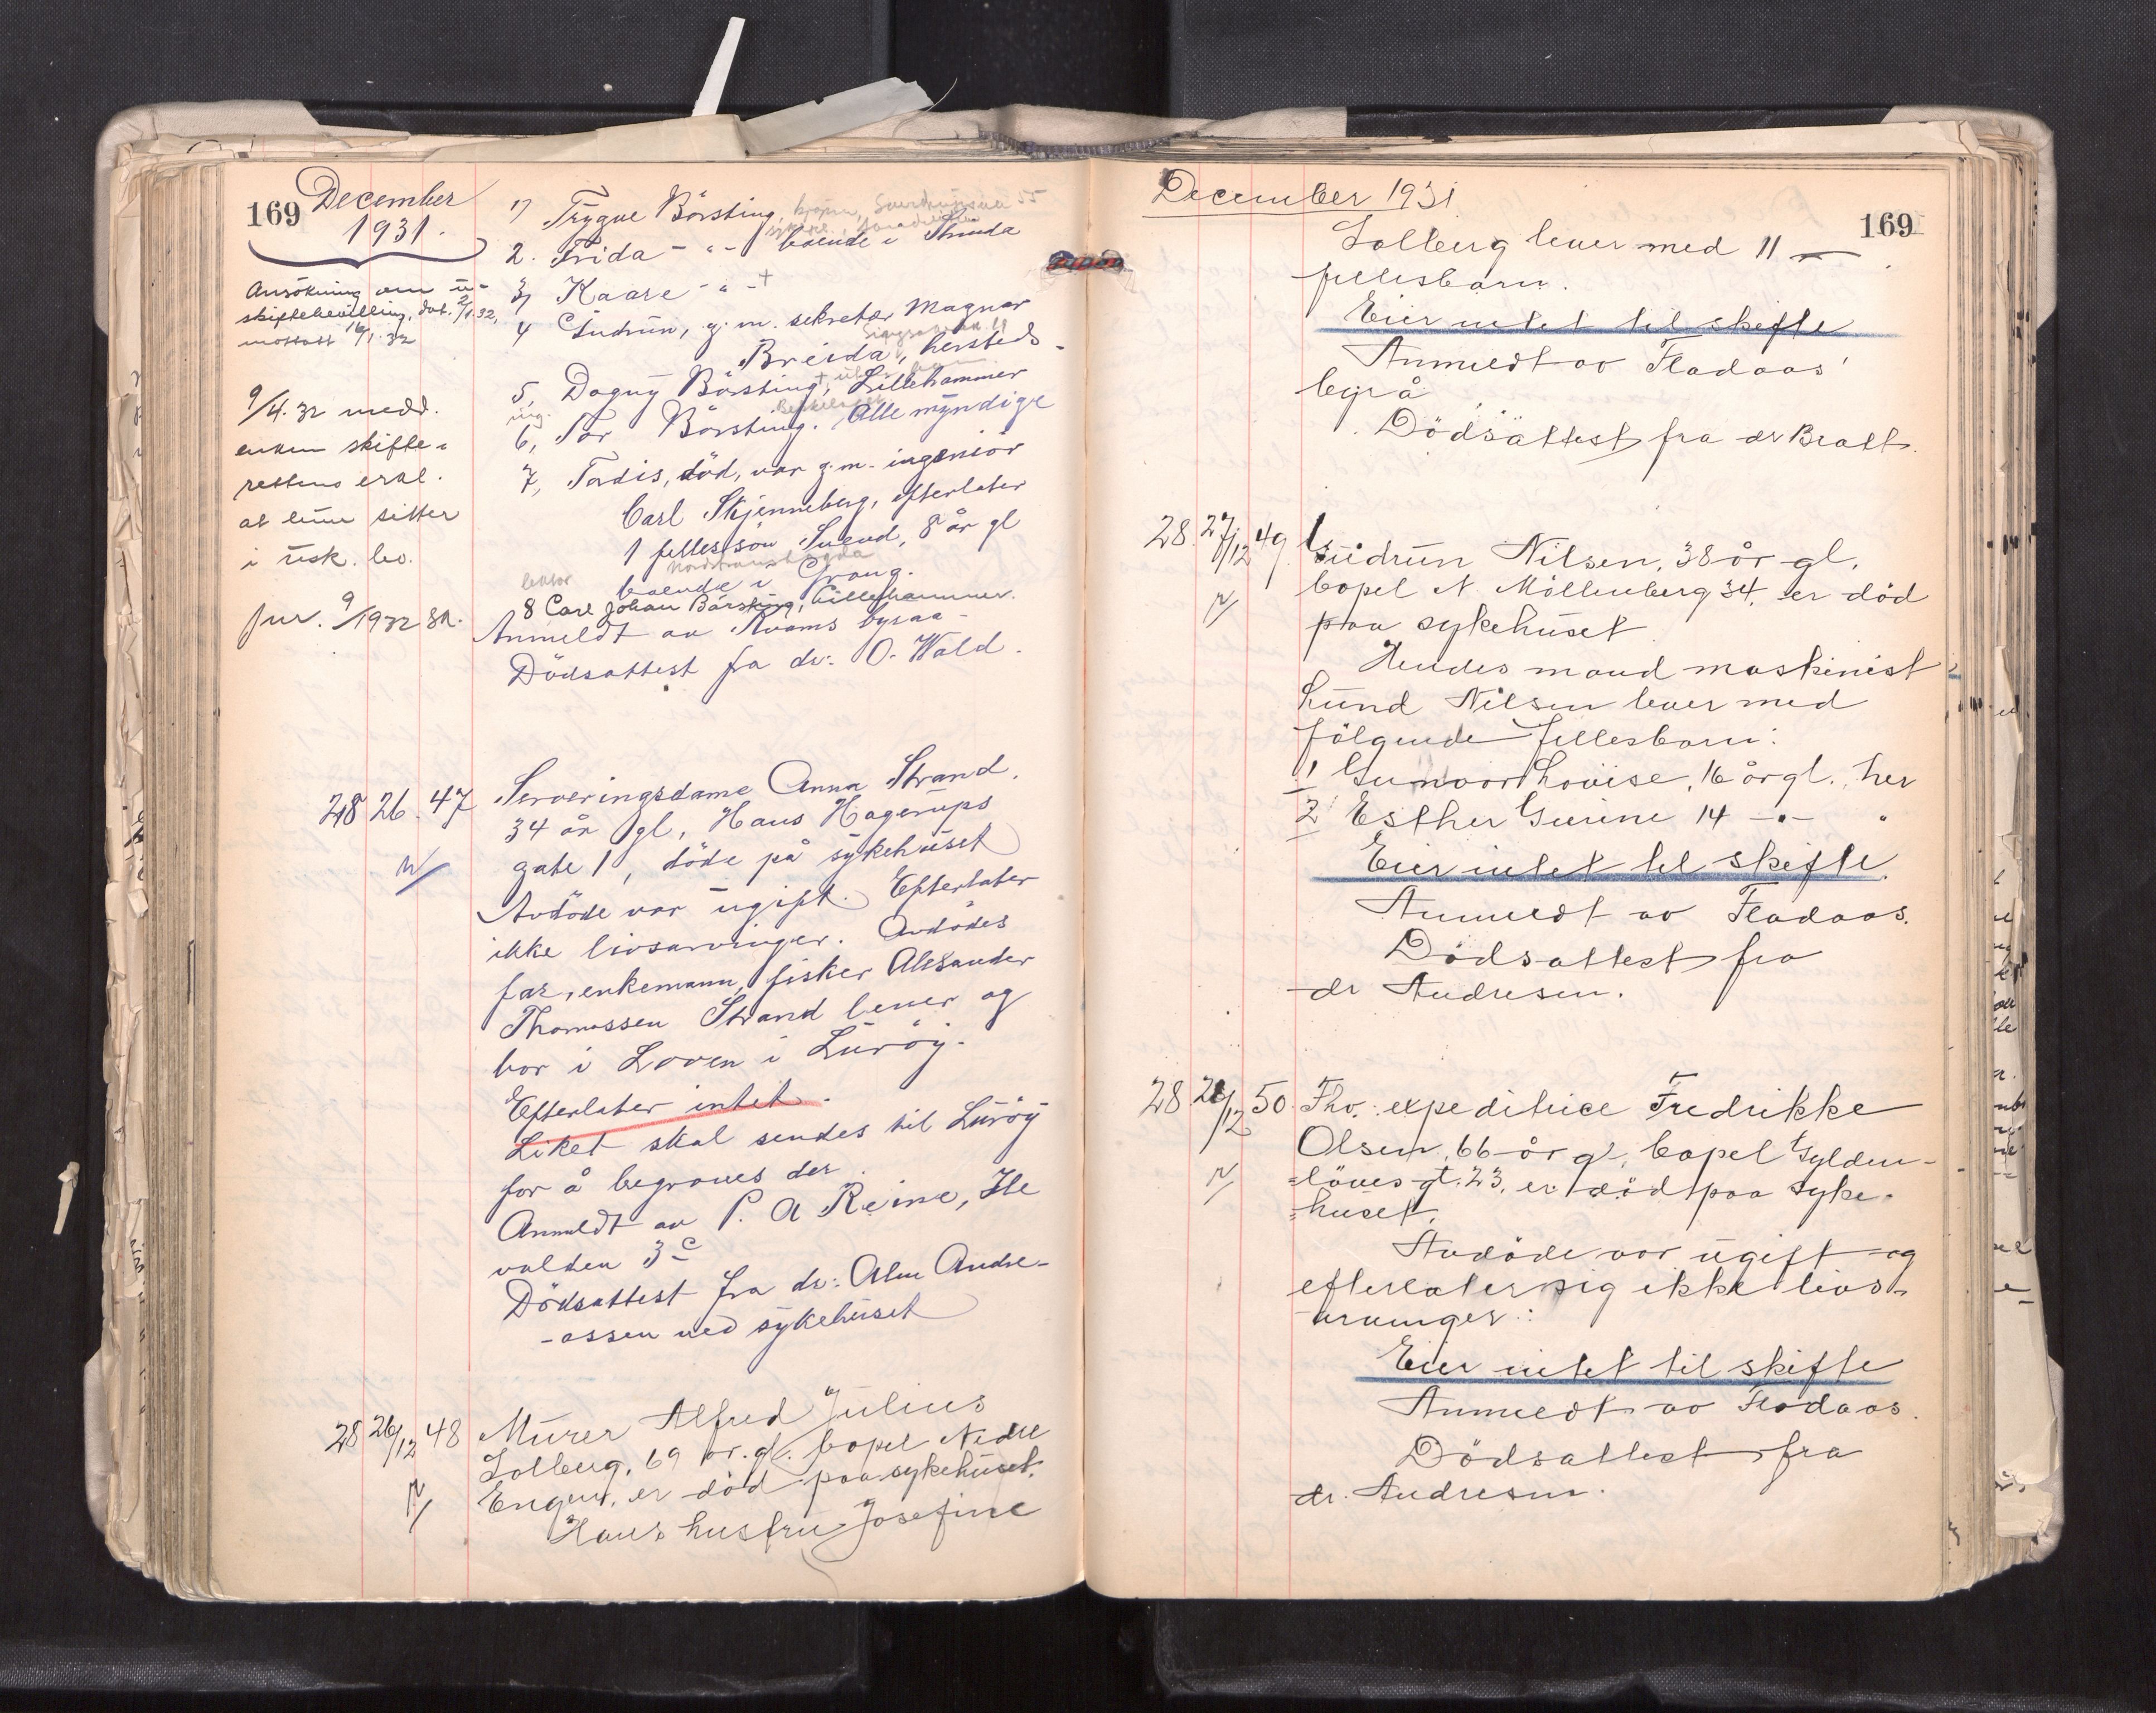 169 December
1931.
Ansökning om u-
skiftebevilling, dat. 2/1.32,
mottatt 16/1.32
9/4.32 medd.
enken skifte-
rettens erkl.
at hun sitter
i usk. bo.
jur. 9/1932 SR.
1) Trygve Börsting,
2. Frida - " - boende i Strinda
3) Kaare - " - +
4 Gudrun, g.m. sekretær Magnar
Breida, hersteds.
5, Dagny Börsting, Lillehammer
ing.
6, Tor Börsting. Alle myndige
7, Tordis, död, var g.m. ingeniör
Carl Skjenneberg, efterlater
1 fellessön Svend, 8 år gl
boende i Grong.
lektor
8 Carl Johan Börsting, Lillehammer.
Anmeldt av Kvams byraa
Dödsattest fra dr. O. Wald.
28 26. 47 Serveringsdame Anna Strand,
34 år gl, Hans Hagerups
gate 1, döde på sykehuset
Avdöde var ugift. Efterlater
ikke livsarvinger. Avdödes
far, enkemann, fisker Alexander
Thomassen Strand lever og
bor i Loven i Luröy.
Efterlater intet.
Liket skal sendes til Luröy
for å begraves der.
Anmeldt av P. A Reine, Ile
volden 3c
Dödsattest fra dr. Alm Andre-
-assen ved sykehuset
28 26/12 48 Murer Alfred Julius
Solberg, 69 år. gl. bopel Nedre
Engen, er död paa sykehuset.
Hans hustru Josefine
December 1931
169
Solberg lever med 11
fellesbarn.
Eier intet til skifte
Anmeldt av Fladaas'
byrå
Dödsattest fra dr Bratt.
28. 27/12 49. Gudrun Nilsen, 38 år gl.
bopel N Möllenberg 34, er död
paa sykehuset.
Hendes mand maskinist
Knud Nilsen lever med
følgende fellesbarn:
1 Gunvor Lovise, 16 år gl., her
2 Esther Gurine 14 - " - "
Eier intet til skifte.
Anmeldt av Fladaas.
Dödsattest fra
dr Andresen.
28. 28/12 50. Fhv. expeditrice Fredrikke
Olsen, 66 år gl, bopel Gylden-
=löves gt. 23, er död paa syke-
=huset.
Avdöde var ugift og
efterlater sig ikke livs-
arvinger:
Eier intet til skifte
Anmeldt av Fladaas.
Dödsattest fra
dr. Andresen.